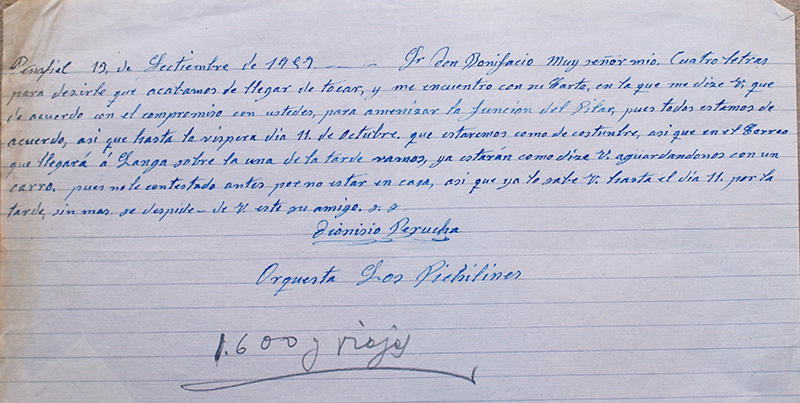 Peñafiel 13, de Sectiembre de 1952 — Sr Don Bonifacio Muy señor mio. Cuatro letras
para dezirle que acabamos de llegar de tocar, y me encuentro con su Carta, en la que me dize V, que
de acuerdo con el compromiso con ustedes, para amenizar la funcion del Pilar, pues todos estamos de
acuerdo, asi que hasta la vispera dia 11 de Octubre. que estaremos como de costunbre, asi que en el Correo
que llegará á Langa sobre la una de la tarde vamos, ya estarán como dize V. aguardandonos con un
carro. pues no le contestado antes por no estar en casa, asi que ya lo sabe V. hasta el día 11. por la
tarde, sin mas se despide — de V. este su amigo. s. s
Dionisio Perucha
Orquesta Los Pichilines
1.600 y viajes